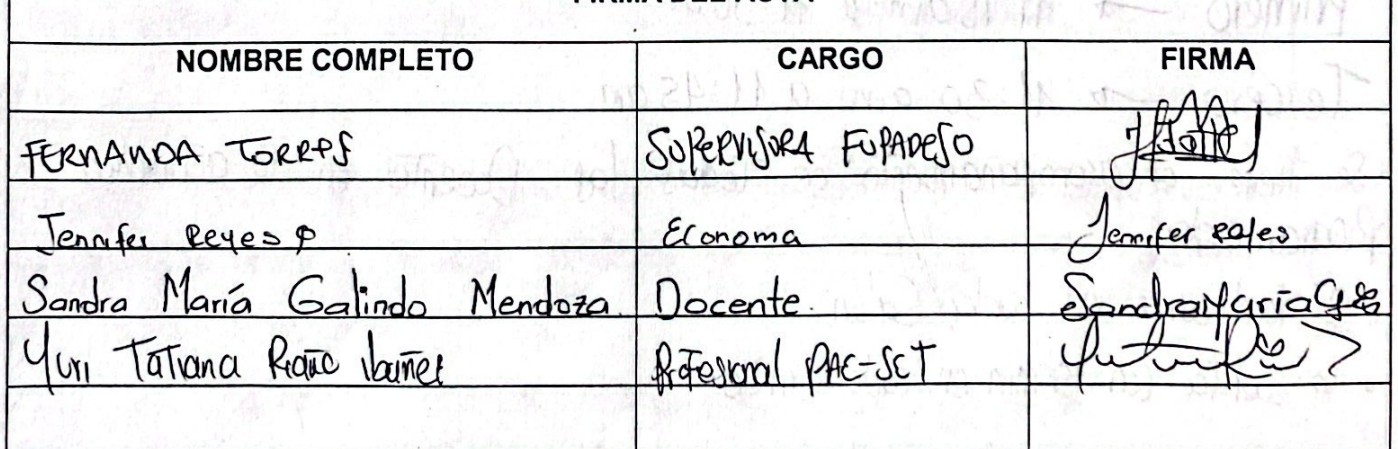 FIRMA DEL ACTA
NOMBRE COMPLETO CARGO FIRMA
FERNANDA TORRES SUPERVISORA FUPADESO
Jennifer Reyes P Economa Jennifer Reyes
Sandra María Galindo Mendoza Docente. Sandra María G
Yuri Tatiana Riaño Ibañez Profesional PAE-SCT